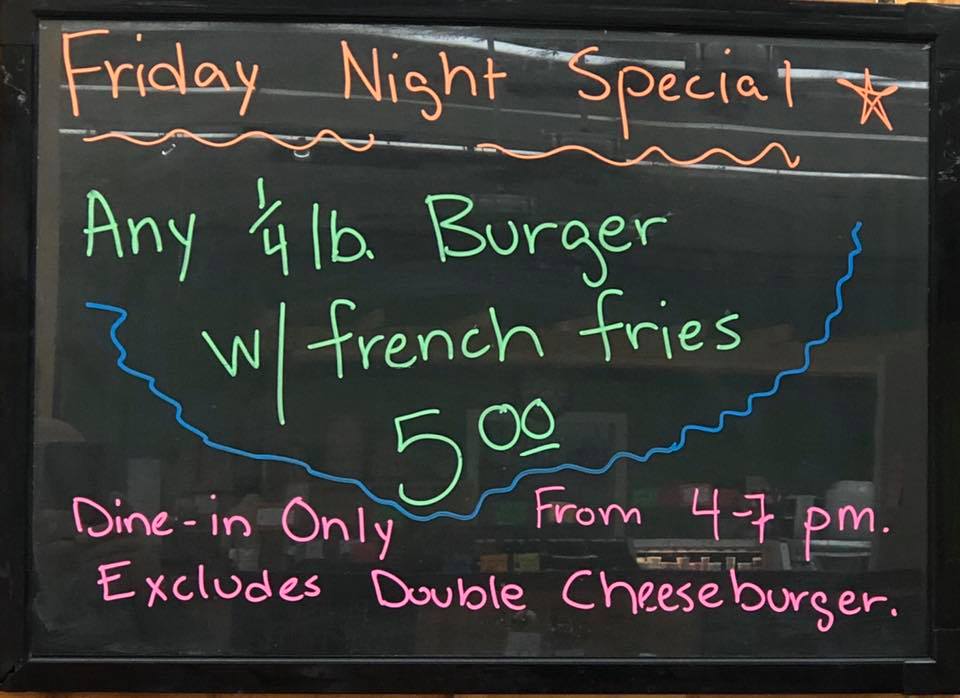 Friday Night Special
Any 1/4 lb. Burger
w/ french fries
5 00
Dine-in Only From 4-7 pm.
Excludes Double Cheeseburger.